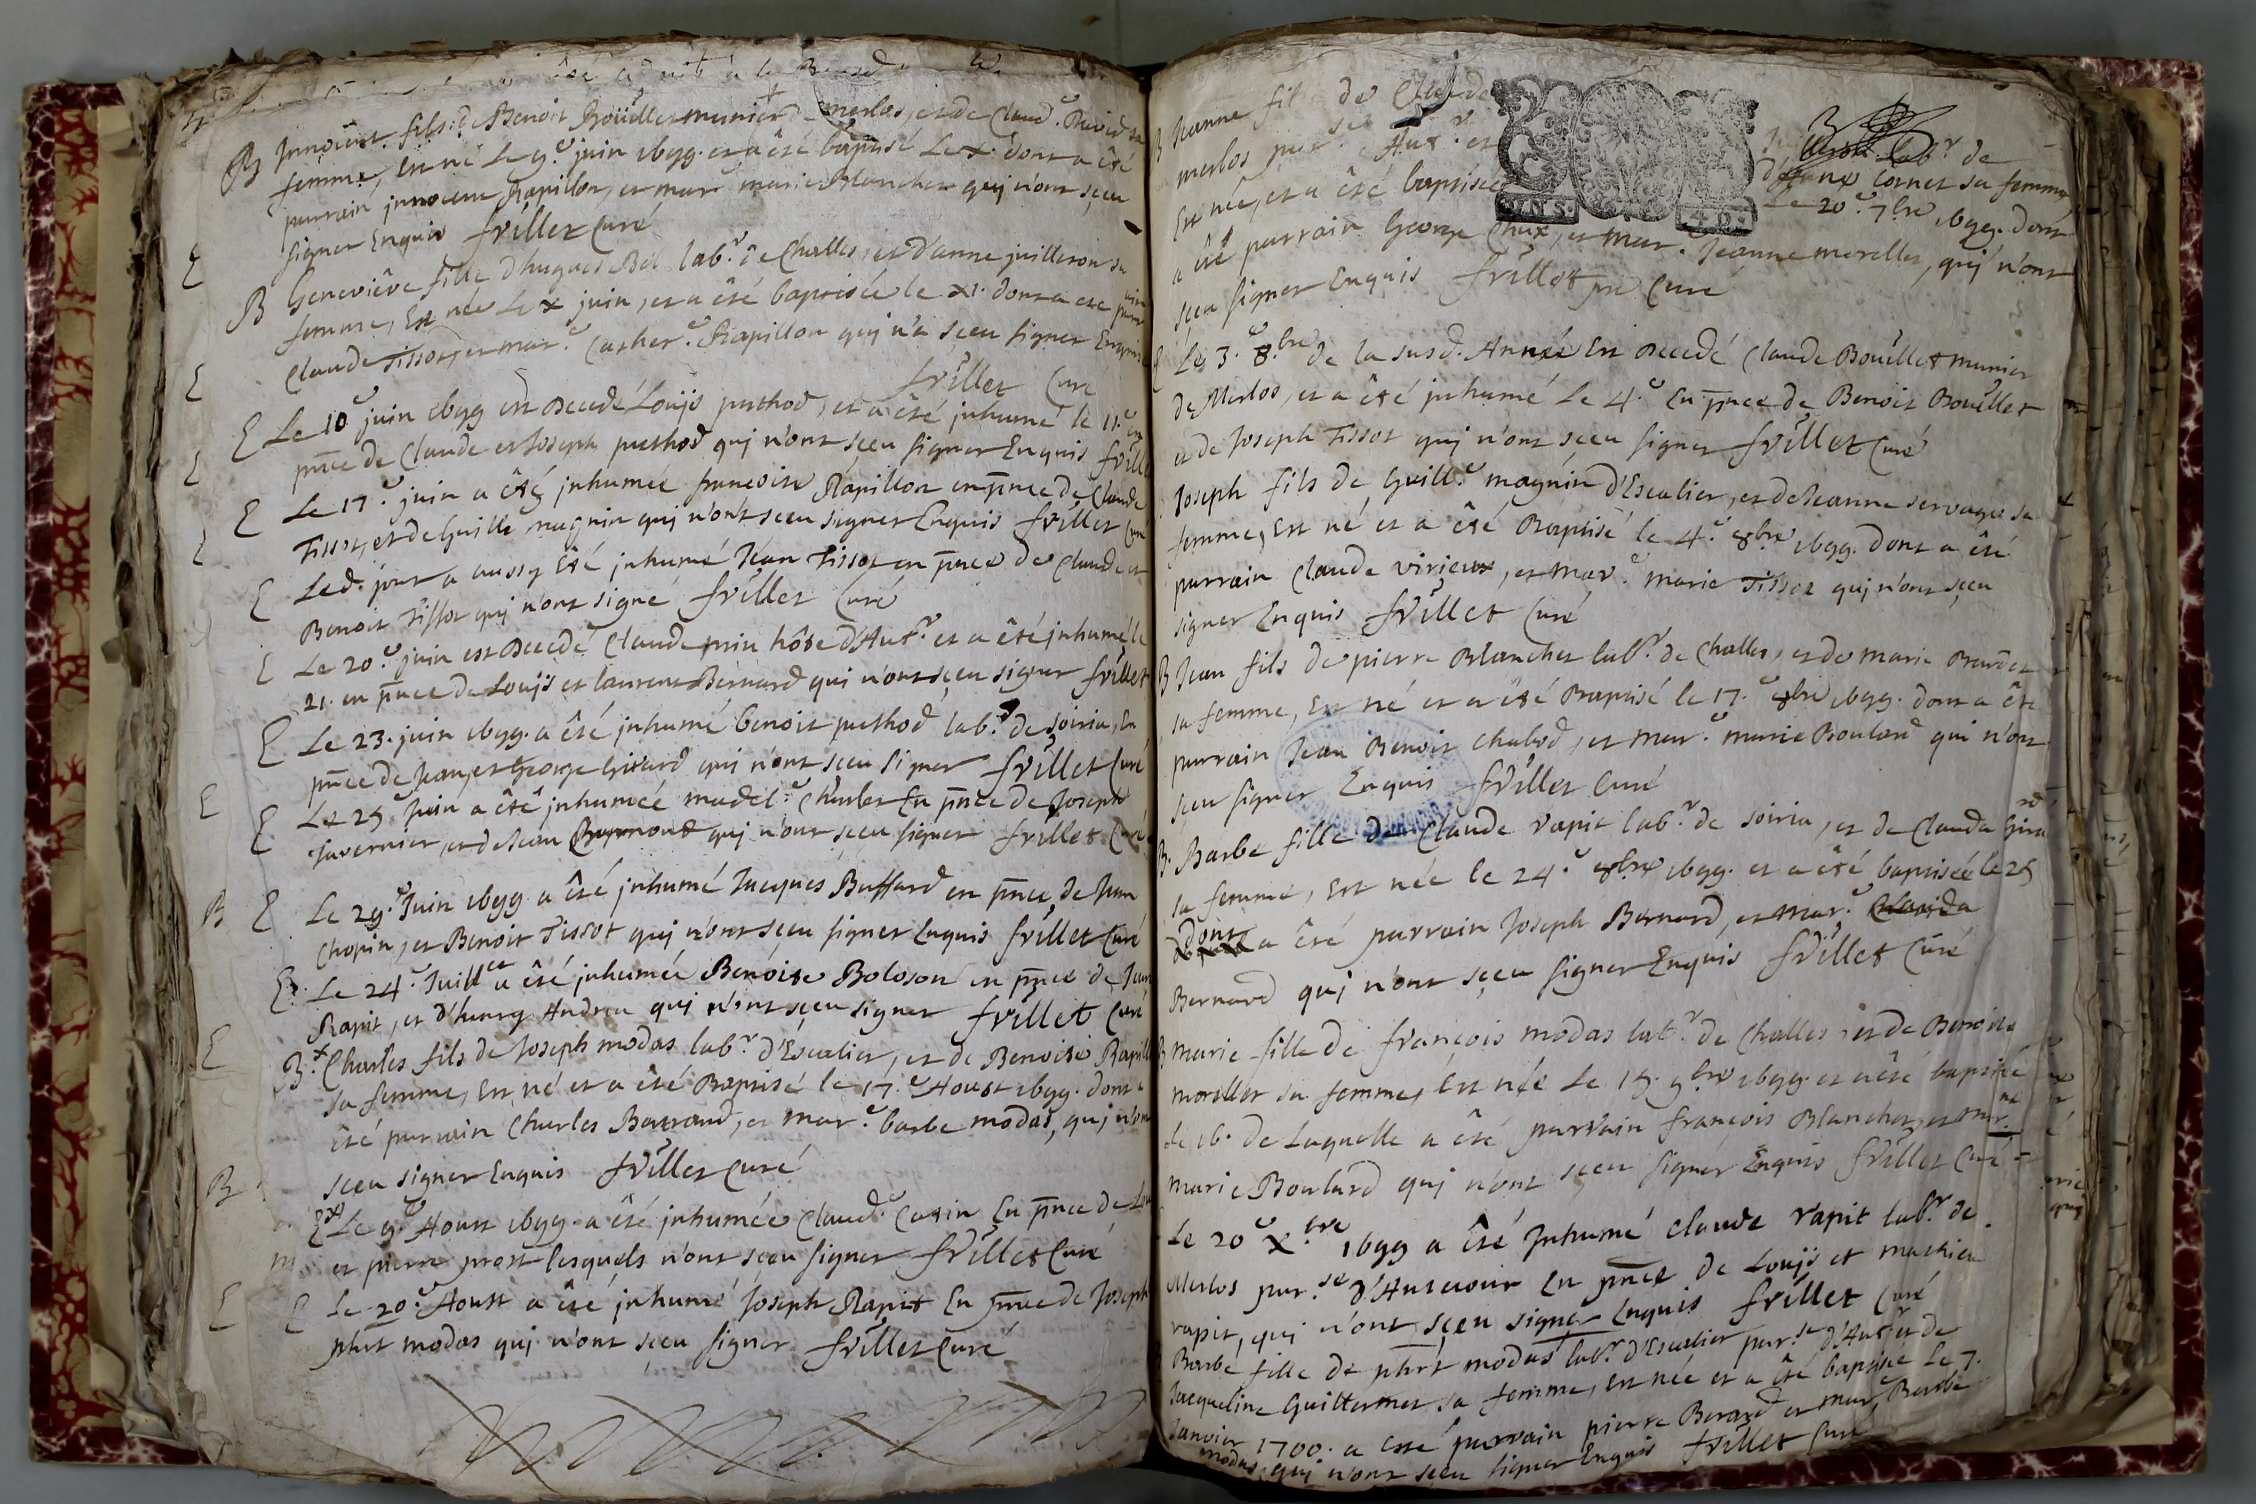 B Innocent fils de Benoit Boüillet munier de merlos, et de Claud.e
femme, Est né Le 9.e juin 1699. et a êté baptisé Le x. dont a êté
parrain jnnocent Rapillon, et mar.e marie Blanchet quj n'ont sçeu
signer Enquis frillet Curé
E
B Geneviêve fille d'hugues lab.r de Challes, et d'anne juilleron sa
femme, Est née Le x juin, et a êté baptisée le xi. dont a esté parrain
Claude Tissot, et mar.e Cather.e Rapillon quj n'a sçeu signer Enquis
frillet Curé
E
E Le 10.e juin 1699 est Decedé Louïs puthod, et a êté jnhumé le 11.e en
pn̄ce de Claude et Joseph puthod quj n'ont sçeu signer Enquis frillet
E
E Le 17.e juin a êté jnhumée francoise Rapillon en pn̄ce de Claude
Tissot, et de Guille magnin quj n'ont sçeu signer Enquis frillet Curé
E
E Led. jour a aussy Eté jnhumé Jean Tissot en pn̄ce de Claude et
Benoit Tissot quj n'ont signé frillet Curé
E Le 20.e juin est Decedé Claude prin hôte d'Aut.r et a êté jnhumé le
21. en pn̄ce de Louïs et laurent Bernard qui n'ont sçeu signer frillet
E Le 23. juin 1699. a êté jnhumé benoit puthod lab.r de soiria, En
pn̄ce de Jean, et George Girard quj n'ont sçeu signer frillet Curé
E
E Le 25.e Juin a êté jnhumée madel.e Charles En pn̄ce de Joseph
Juvernier, et de Jean quj n'ont sçeu signer frillet Curé
B E Le 29.e Juin 1699 a êté jnhumé Jacques Buffard en pn̄ce de Jean
Chopin, et Benoit Tissot quj n'ont sçeu signer Enquis frillet Curé
E. Le 24.e Juillet a êté jnhumée Benoite Boloson en pn̄ce de Jean
Rapit, et d'henry Andrea quj n'ont sçeu signer frillet Curé
E
B.x Charles fils de Joseph modas lab.r d'Escalier, et de Benoite Rapillon
sa femme, Est né et a êté Baptisé le 17.e Aoust 1699. dont a
êté parrain Charles Barraud, et mar.e barbe modas, quj n'ont
sçeu signer Enquis frillet Curé
B
Ex Le 9.e Aoust 1699. a êté jnhumée Claud.e En pn̄ce de
et pierre prost lesquels n'ont sçeu signer frillet Curé
m
E E Le 20.e Aoust a êté jnhumé Joseph Rapit En pn̄ce de Joseph
phrt modas quj n'ont sçeu signer frillet Curé
B Jeanne fille de Claude lab.r de
merlos par.se d'Aut.r et de Jeanne Cornet sa femme
Est née, et a êté baptisée Le 20.e 7bre 1699. dont
a êté parrain George Chux, et mar.e Jeanne morellet, quj n'ont
sçeu signer Enquis frillet pre Curé
E Le 3.e 8.bre de la susd. Année Est Decedé Claude Boüillet munier
de Merlos, et a êté jnhumé Le 4.e En pn̄ce de Benoit Boüillet
et de Joseph Tissot quj n'ont sçeu signer frillet Curé
Joseph fils de Guill.e magnin d'Escalier, et de Jeanne servage sa
femme, Est né et a êté Baptisé le 4.e 8bre 1699. dont a êté
parrain Claude virieux, et mar.e marie Tissot quj n'ont sçeu
signer Enquis frillet Curé
B Jean fils de pierre Blanchet lab.r de Challes, et de marie
sa femme, Est né et a êté Baptisé le 17.e 8bre 1699. dont a êté
parrain Jean Benoit Chabod, et mar.e marie Boulard qui n'ont
sçeu signer Enquis frillet Curé
B. Barbe fille de Claude rapit lab.r de soiria, et de Clauda Girard
sa femme, Est née le 24.e 8bre 1699. et a êté baptisée le 25
dont a êté parrain Joseph Bernard, et mar.e Clauda
Bernard quj n'ont sçeu signer Enquis frillet Curé
B marie fille de françois modas lab.r de Challes, et de Benoite
morellet sa femme, Est née Le 15. 9bre 1699. et a êté baptisée
Le 16. de Laquelle a êté parrain françois Blanchet, et mar.ne
marie Boulard quj n'ont sçeu signer Enquis frillet Curé
Le 20.e X.bre 1699 a êté Jnhumé Claude rapit lab.r de
Merlos par.se d'Autecour En pn̄ce de Louïs et mathieu
rapit, quj n'ont sçeu signer Enquis frillet Curé
Barbe fille de phrt modas lab.r d'Escalier par.se d'Aut.r et de
Jacqueline Guillermet sa femme, Est née et a êté baptisée Le 7.
Janvier 1700. a esté parrain pierre Berard et mar.e Barbe
modas, quj n'ont sçeu signer Enquis frillet Curé